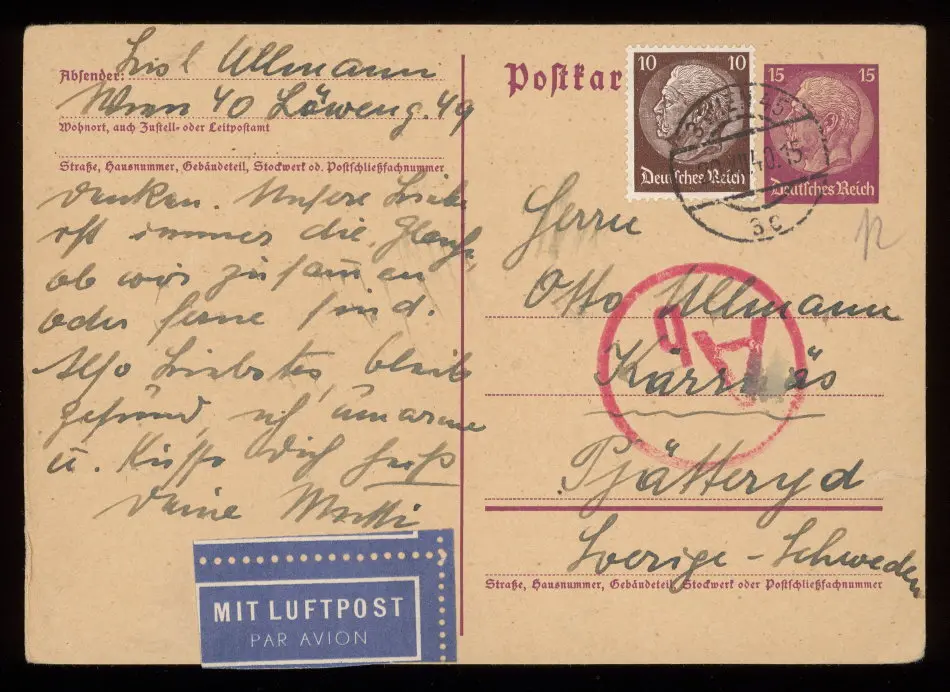 Absender: Lisl Ullmann
Wien 40 Löweng. 49
Wohnort, auch Zustell- oder Leitpostamt
Straße, Hausnummer, Gebäudeteil, Stockwerk od. Postschließfachnummer
denken. Unsere Liebe
ist immer die gleiche,
ob wir zusammen
oder ferne sind.
Also Liebstes, bleib
gesund, ich umarme
u. Küsse Dich heiß
Deine Mutti
MIT LUFTPOST
PAR AVION
Postkar
10 10
Deutsches Reich
15 15
Deutsches Reich
40.15
Herrn
Otto Ullmann
Ab
Pjätteryd
Sverige - Schweden
Straße, Hausnummer, Gebäudeteil, Stockwerk oder Postschließfachnummer